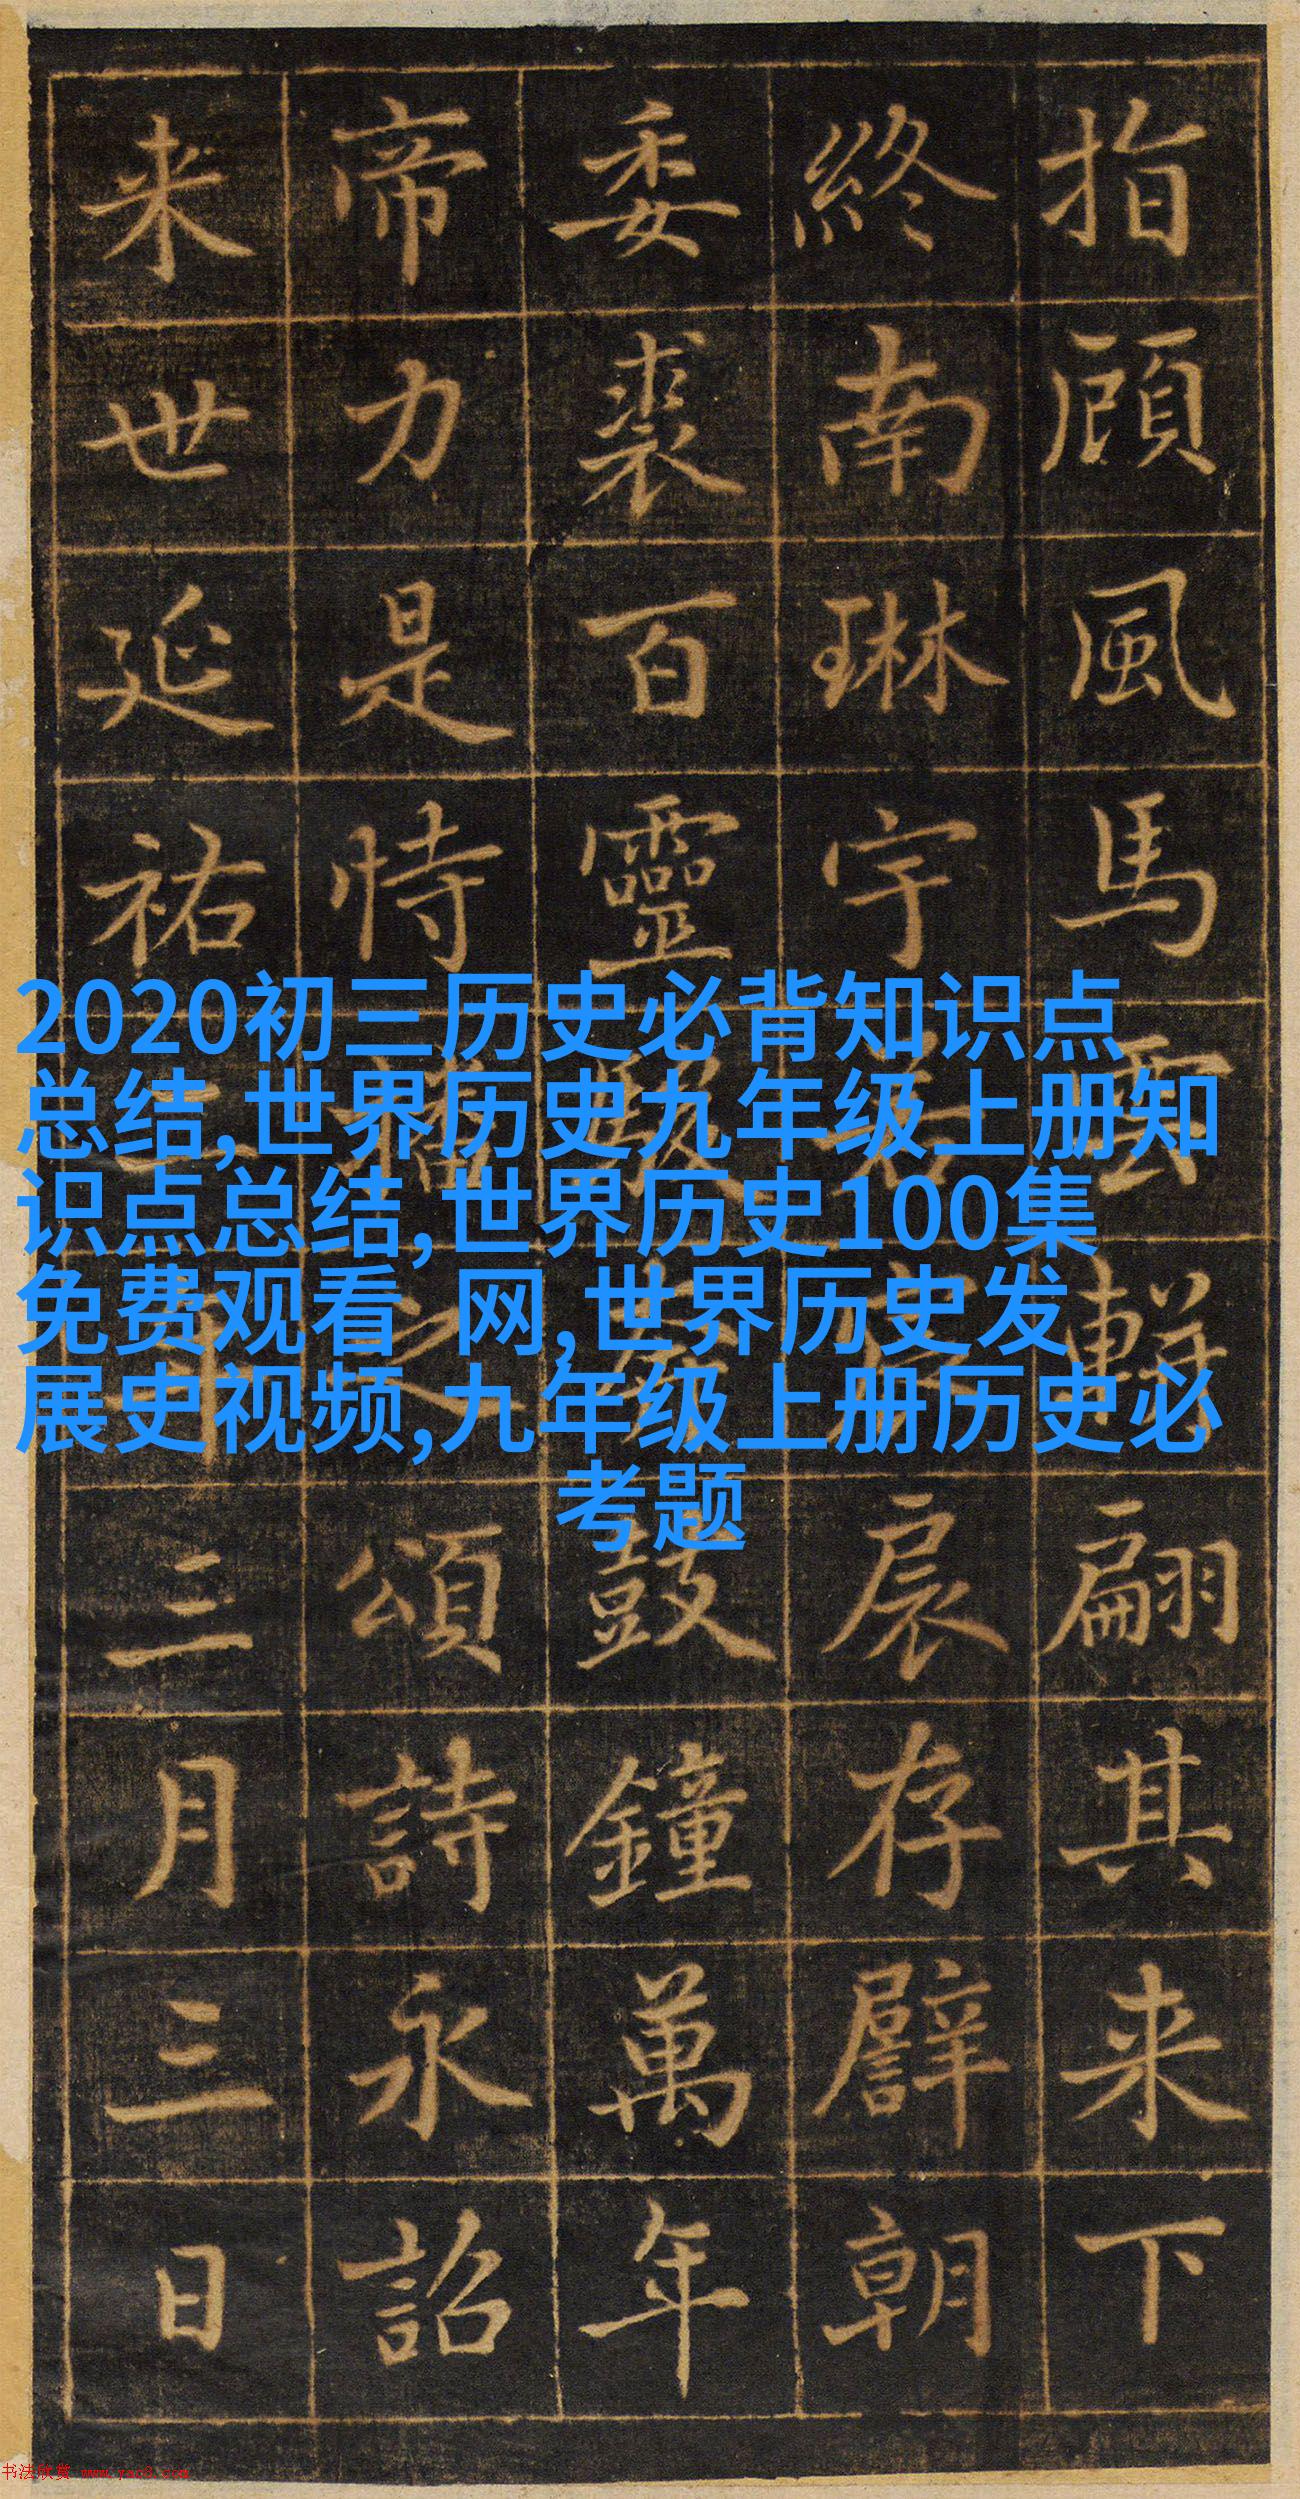 指顧風馬雲輧翩其来下
終南琳宇扆存譬朝
委裘百靈鼓鐘萬年
帝力是恃播之頌詩永詔
来世延祐二年三月三日
2020初三历史必背知识点
总结,世界历史九年级上册知
识点总结,世界历史100集
免费观看 网,世界历史发
展史视频,九年级上册历史必
考题
书法欣赏 www.yac8.com